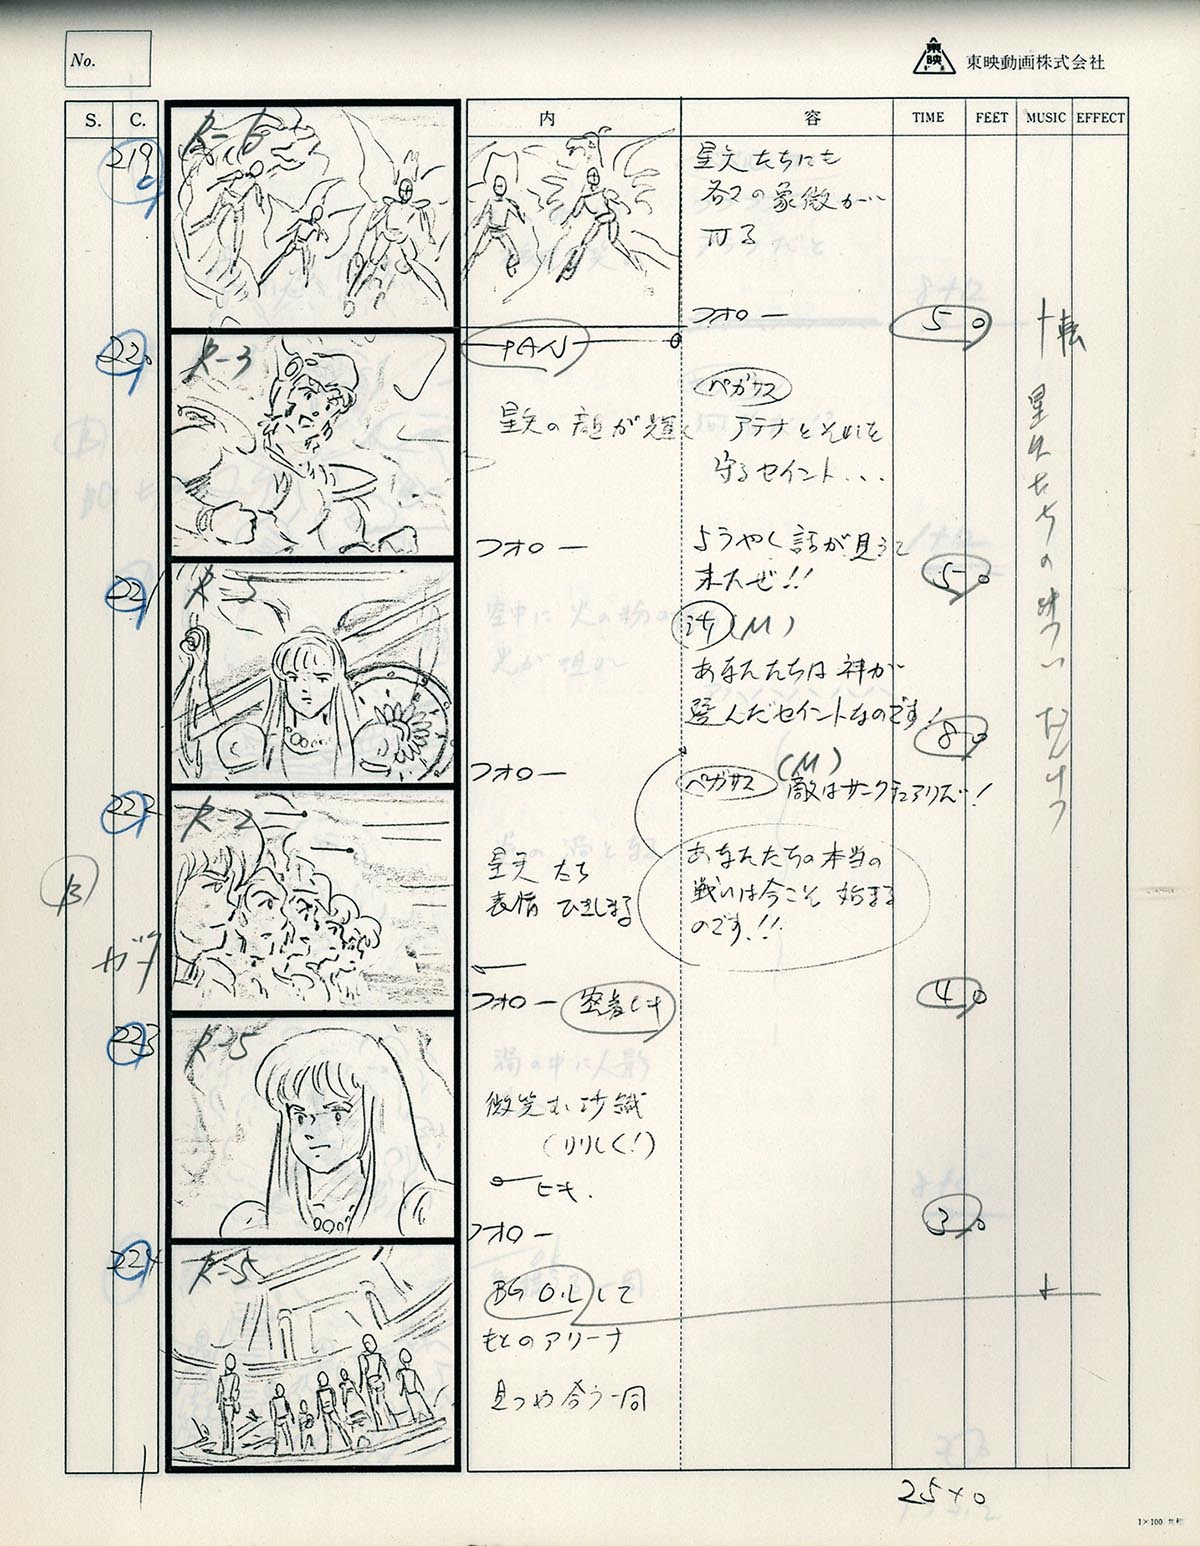 No.
東映
東映動画株式会社
S. C. 内 容 TIME FEET MUSIC EFFECT
219
R-6
星矢たちにも
各々の象徴が
フォロー
5 0
220
R-3
PAN
星矢の顔が輝く
ペガサス
アテナとそれを
守るセイント...
フォロー
ようやく話が見えて
来たぜ!!
5 0
221
R-5
沙 (M)
あなたたちは神が
選んだセイントなのです!
8 0
フォロー
ペガサス (M) 敵はサンクチュアリだ!
222
R-2
B
星矢たち
表情 ひきしまる
あなたたちの本当の
戦いは今こそ始まる
のです!!
フォロー 密着ヒキ
4 0
223
R-5
微笑む沙織
(りりしく!)
ヒキ.
フォロー
3 0
224
R-5
BG O.Lして
もとのアリーナ
見つめ合う一同
25+0
1×100 共和